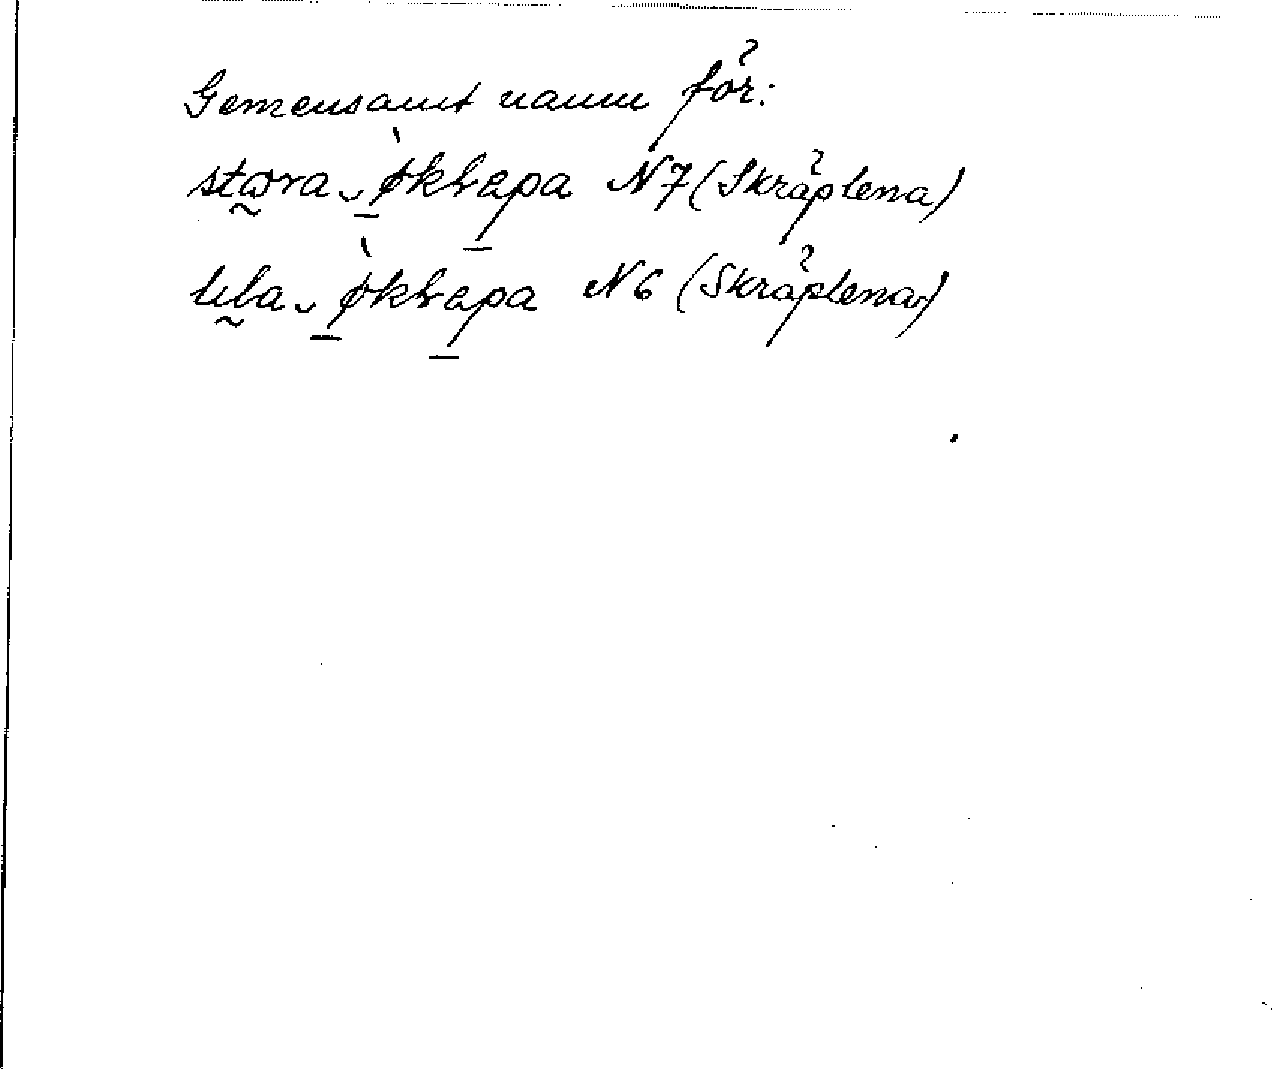 Gemensamt namn för:
stora økrapa N7 (Skräplena)
lila økrapa N6 (Skräplena)